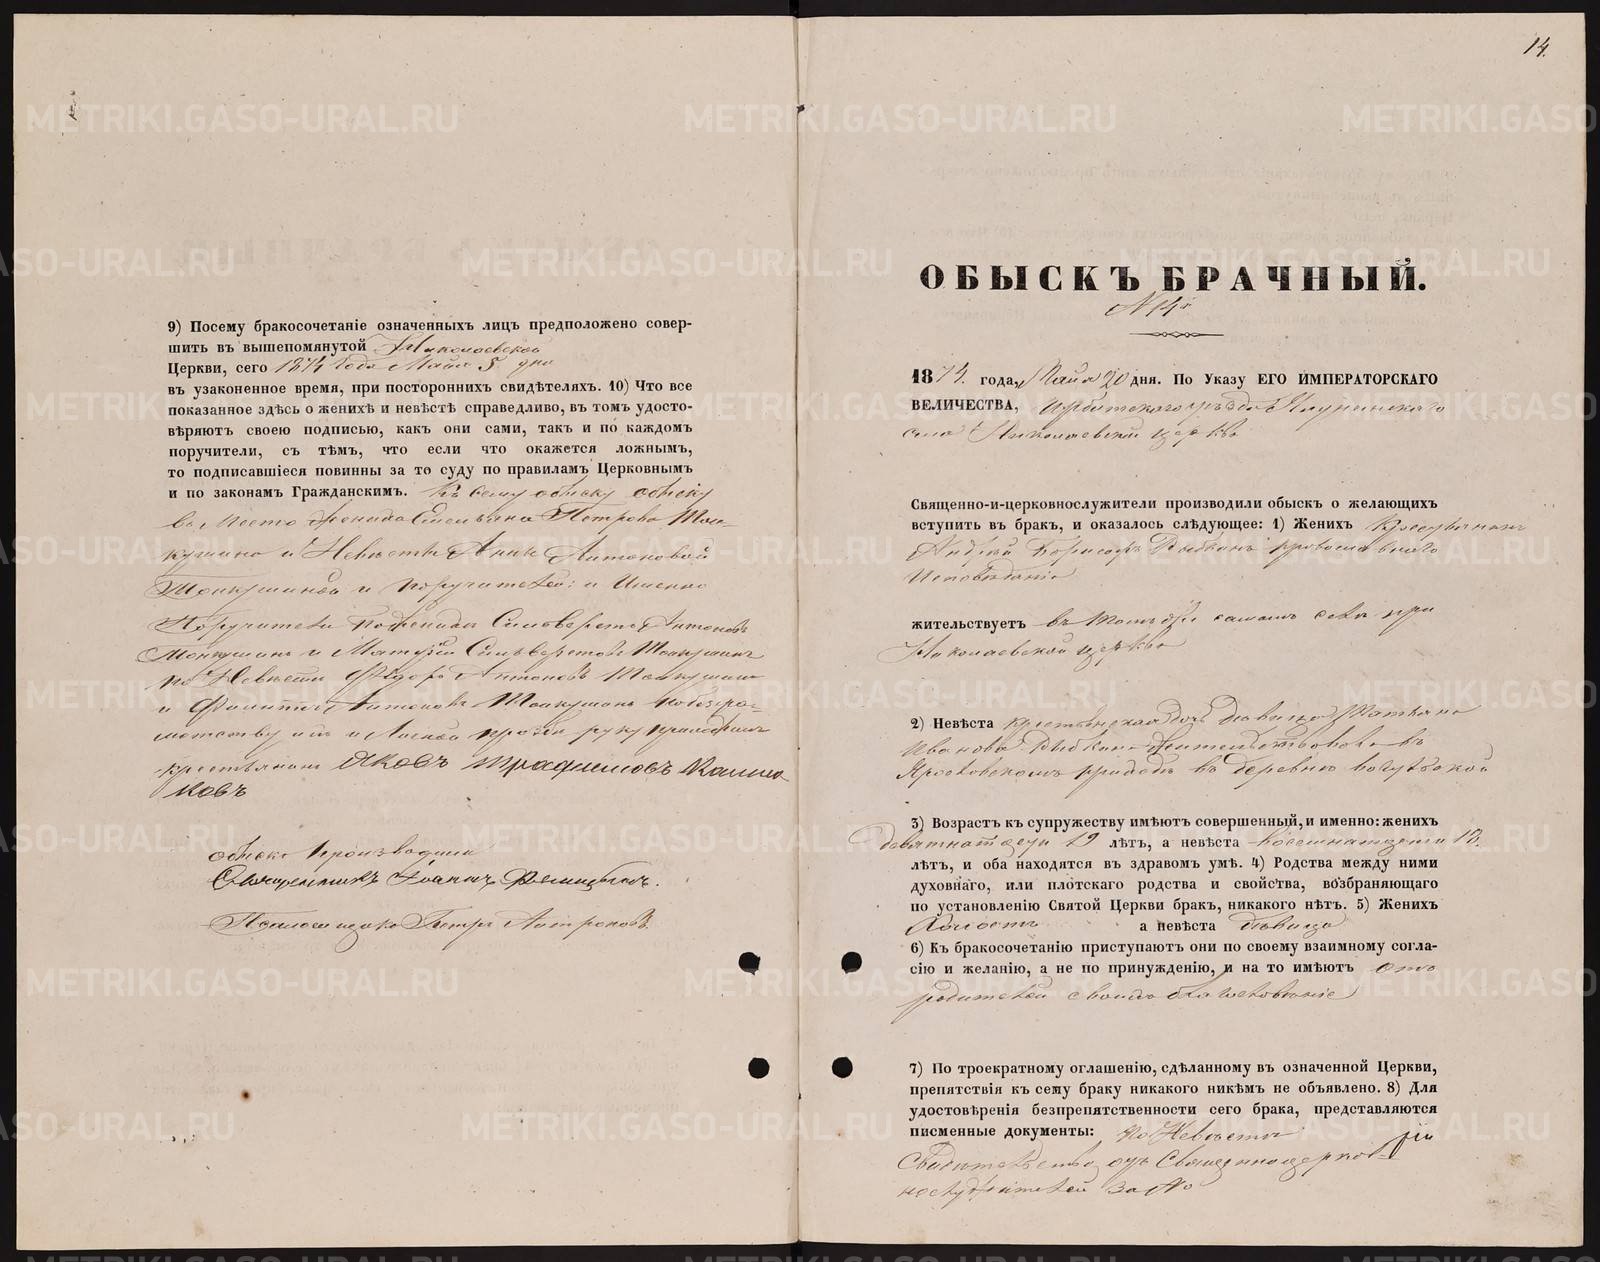 9) Посему бракосочетаніе означенныхъ лицъ предположено совер-
шить въ вышепомянутой Николаевской
Церкви, сего 1874 года Маія 5 дня
въ узаконенное время, при постороннихъ свидѣтеляхъ. 10) Что все
показанное здѣсь о женихѣ и невѣстѣ справедливо, въ томъ удосто-
вѣряютъ своею подписью, какъ они сами, такъ и по каждомъ
поручители, съ тѣмъ, что если что окажется ложнымъ,
то подписавшіеся повинны за то суду по правиламъ Церковнымъ
и по законамъ Гражданскимъ. Къ сему обыску обыску
въ место жениха Емельяна Петрова
и Невѣсты Анны Антоновой
и поручителей: и Именно
Поручители по женихе Сильверстъ Антоновъ
и Сильверстовъ
по Невѣсти Федоръ Антоновъ
и Антоновъ по безгра-
мотству ихъ и Личной прозьбе руку приложилъ
крестьянинъ Яковъ Трафимовъ Калина
ковъ
обыскъ Производили
Священникъ Іоаннъ
Псаломщикъ Петръ
14.
ОБЫСКЪ БРАЧНЫЙ.
№ 14й
1874. года, Маія 20 дня. По Указу ЕГО ИМПЕРАТОРСКАГО
ВЕЛИЧЕСТВА, Ирбитскаго уѣзда
села Николаевской церкви
Священно-и-церковнослужители производили обыскъ о желающихъ
вступить въ бракъ, и оказалось слѣдующее: 1) Женихъ крестьянинъ
Андрей Борисовъ православнаго
Исповѣданія
жительствуетъ въ томъ же самомъ селѣ при
Николаевской церкви
2) Невѣста крестьянская дочь дѣвица Татьяна
Иванова жительствовала въ
приходѣ въ деревне
3) Возрастъ къ супружеству имѣютъ совершенный, и именно: женихъ
девятнатцеди 19 лѣтъ, а невѣста восемнатцети 18.
лѣтъ, и оба находятся въ здравомъ умѣ. 4) Родства между ними
духовнаго, или плотскаго родства и свойства, возбраняющаго
по установленію Святой Церкви бракъ, никакого нѣтъ. 5) Женихъ
Холостъ а невѣста дѣвица
6) Къ бракосочетанію приступаютъ они по своему взаимному согла-
сію и желанію, а не по принужденію, и на то имѣютъ отъ
родителей своихъ благословеніе
7) По троекратному оглашенію, сдѣланному въ означенной Церкви,
препятствія къ сему браку никакого никѣмъ не объявлено. 8) Для
удостовѣренія безпрепятственности сего брака, представляются
писменные документы: по Невѣсты
Свидетельство отъ Священноцерков-
нослужителей за №
METRIKI.GASO-URAL.RU